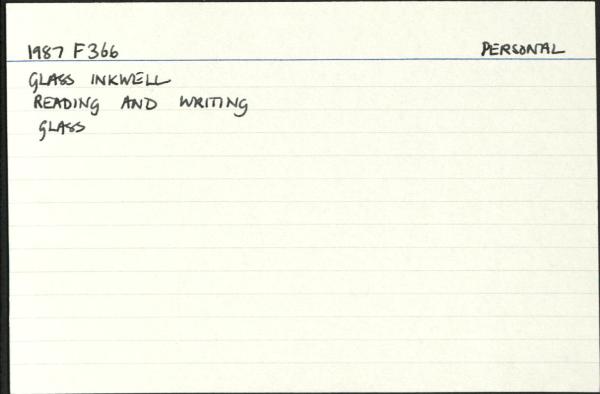 1987 F366 PERSONAL
GLASS INKWELL
READING AND WRITING
GLASS